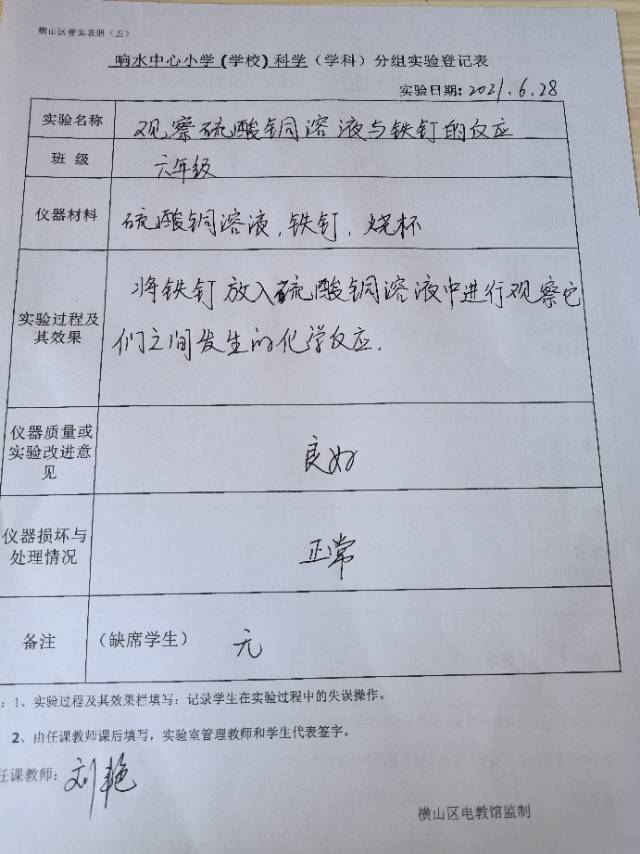 横山区普实表册（五）
响水中心小学（学校）科学（学科）分组实验登记表
实验日期：2021.6.28
实验名称 观察硫酸铜溶液与铁钉的反应
班 级 六年级
仪器材料 硫酸铜溶液，铁钉，烧杯
将铁钉放入硫酸铜溶液中进行观察它
实验过程及
其效果
们之间发生的化学反应.
仪器质量或
实验改进意
见
良好
仪器损坏与
处理情况
正常
备注 （缺席学生） 无
：1、实验过程及其效果栏填写：记录学生在实验过程中的失误操作。
2、由任课教师课后填写，实验室管理教师和学生代表签字。
任课教师：刘艳
横山区电教馆监制